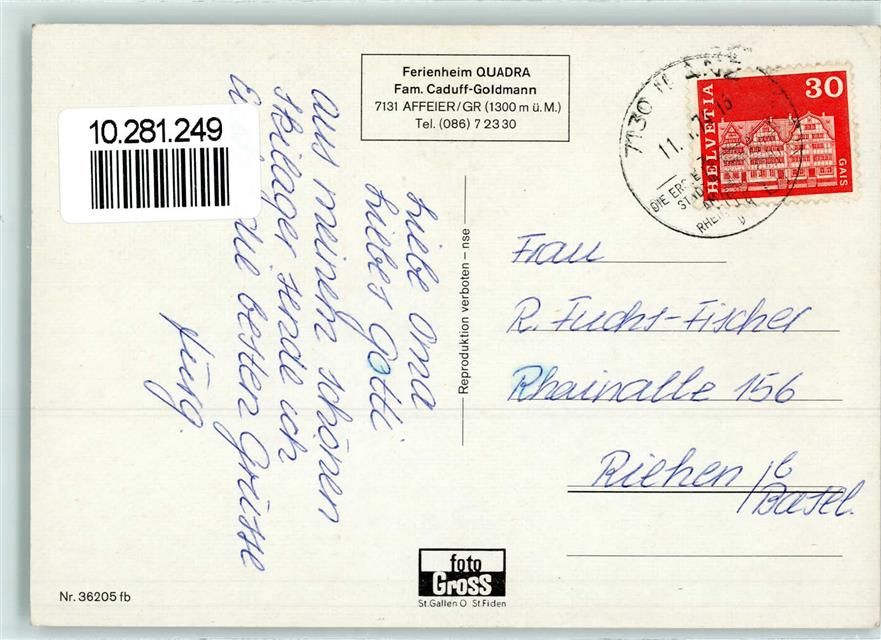 Ferienheim QUADRA
Fam. Caduff-Goldmann
7131 AFFEIER/GR (1300 m ü. M.)
Tel. (086) 7 23 30
10.281.249
Liebe Oma
Liebes Gotti
aus meinem schönen
Skilager sende ich
die besten Grüsse
Jürg.
Reproduktion verboten – nse
7130
11.
DIE ERSTE
STADT AM
HELVETIA
30
GAIS
Frau
R. Fuchs-Fischer
Rhainalle 156
Riehen b/Basel.
foto
Gross
St.Gallen O St.Fiden
Nr. 36205 fb